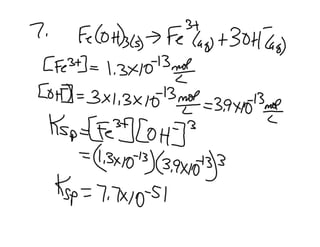 7. Fe(OH)₃(s) → Fe³⁺(aq) + 3OH⁻(aq)
[Fe³⁺] = 1.3x10⁻¹³ mol/L
[OH⁻] = 3x1.3x10⁻¹³ mol/L = 3.9x10⁻¹³ mol/L
Ksp = [Fe³⁺][OH⁻]³
= (1.3x10⁻¹³)(3.9x10⁻¹³)³
Ksp = 7.7x10⁻⁵¹